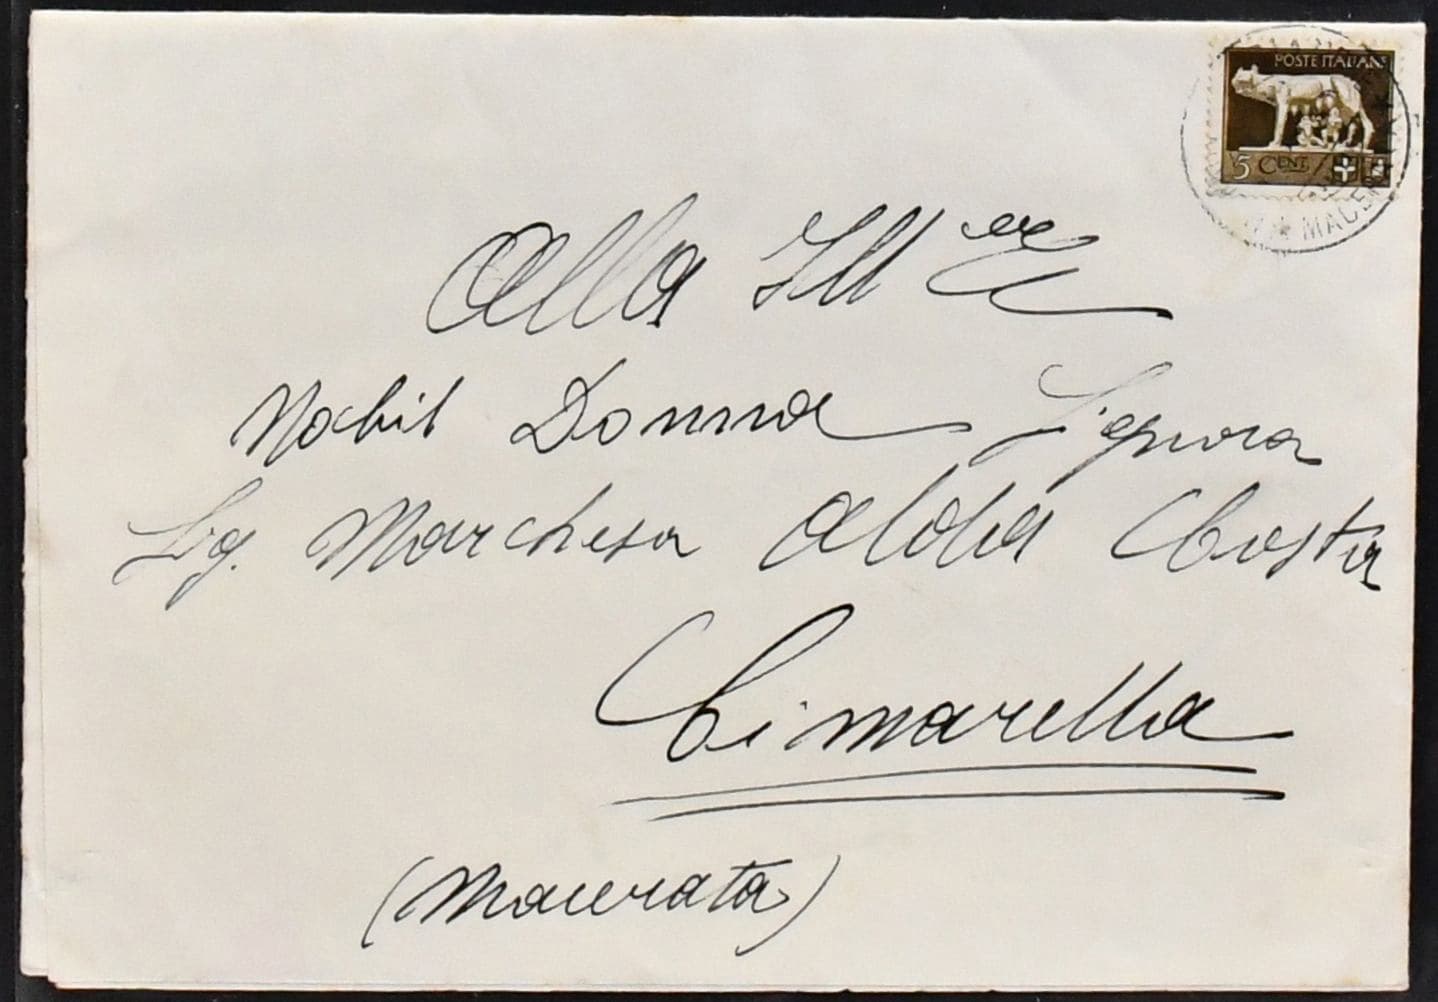 POSTE ITALIANE
5 CENT.
MACERATA
Alla Ill
Nobil Donna Signora
Marchesa Alda Costa
Cimarella
(Macerata)